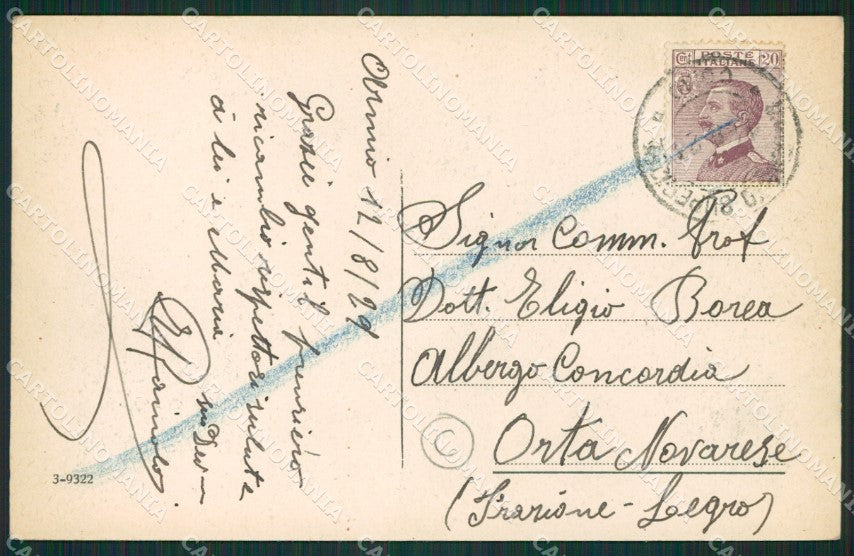 12/8/29
Grazie gentil pensiero
ricambio rispettosi saluti
a lei e Maria
suo Dev
3-9322
POSTE
ITALIANE
Ct 20
Signor Comm. Prof
Dott. Eligio Borea
Albergo Concordia
Orta Novarese
(Frazione-Legro)
C
CARTOLINOMANIA